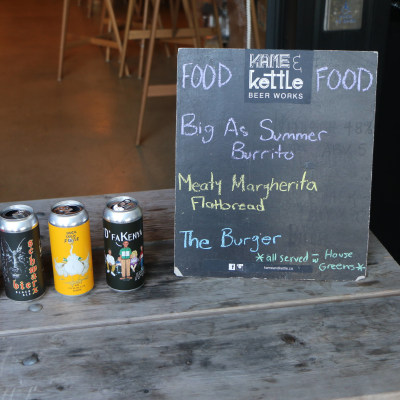 KAME &
FOOD kettle FOOD
BEER WORKS
Big As Summer
Burrito
Meaty Margherita
Flatbread
The Burger
*all served w House
Greens*
schwarz
bier
D' FAKENYA